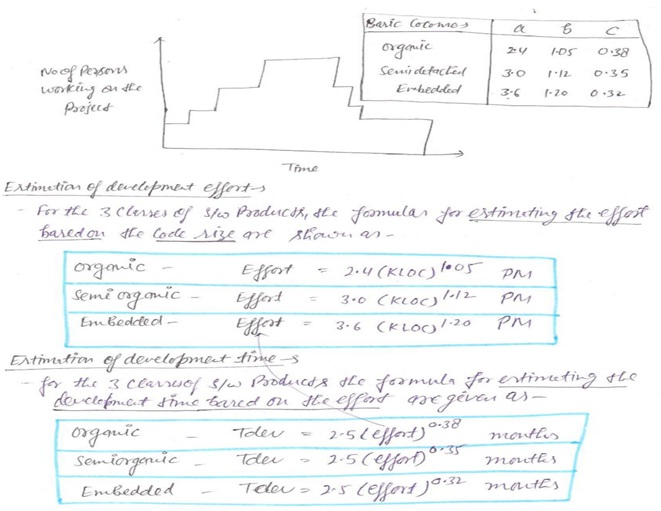 Basic Cocomos a b c
organic 2.4 1.05 0.38
Semidetached 3.0 1.12 0.35
Embedded 3.6 1.20 0.32
No of Persons
working on the
Project
Time
Estimation of development effort→
- For the 3 Classes of S/w Products, the formulas for estimating the effort
based on the Code size are shown as -
organic - Effort = 2.4 (KLOC)^1.05 PM
Semi organic - Effort = 3.0 (KLOC)^1.12 PM
Embedded - Effort = 3.6 (KLOC)^1.20 PM
Estimation of development time →
- for the 3 Classes of S/w Products the formula for estimating the
development time based on the effort are given as -
organic - Tdev = 2.5 (effort)^0.38 months
Semiorganic - Tdev = 2.5 (effort)^0.35 months
Embedded - Tdev = 2.5 (effort)^0.32 months